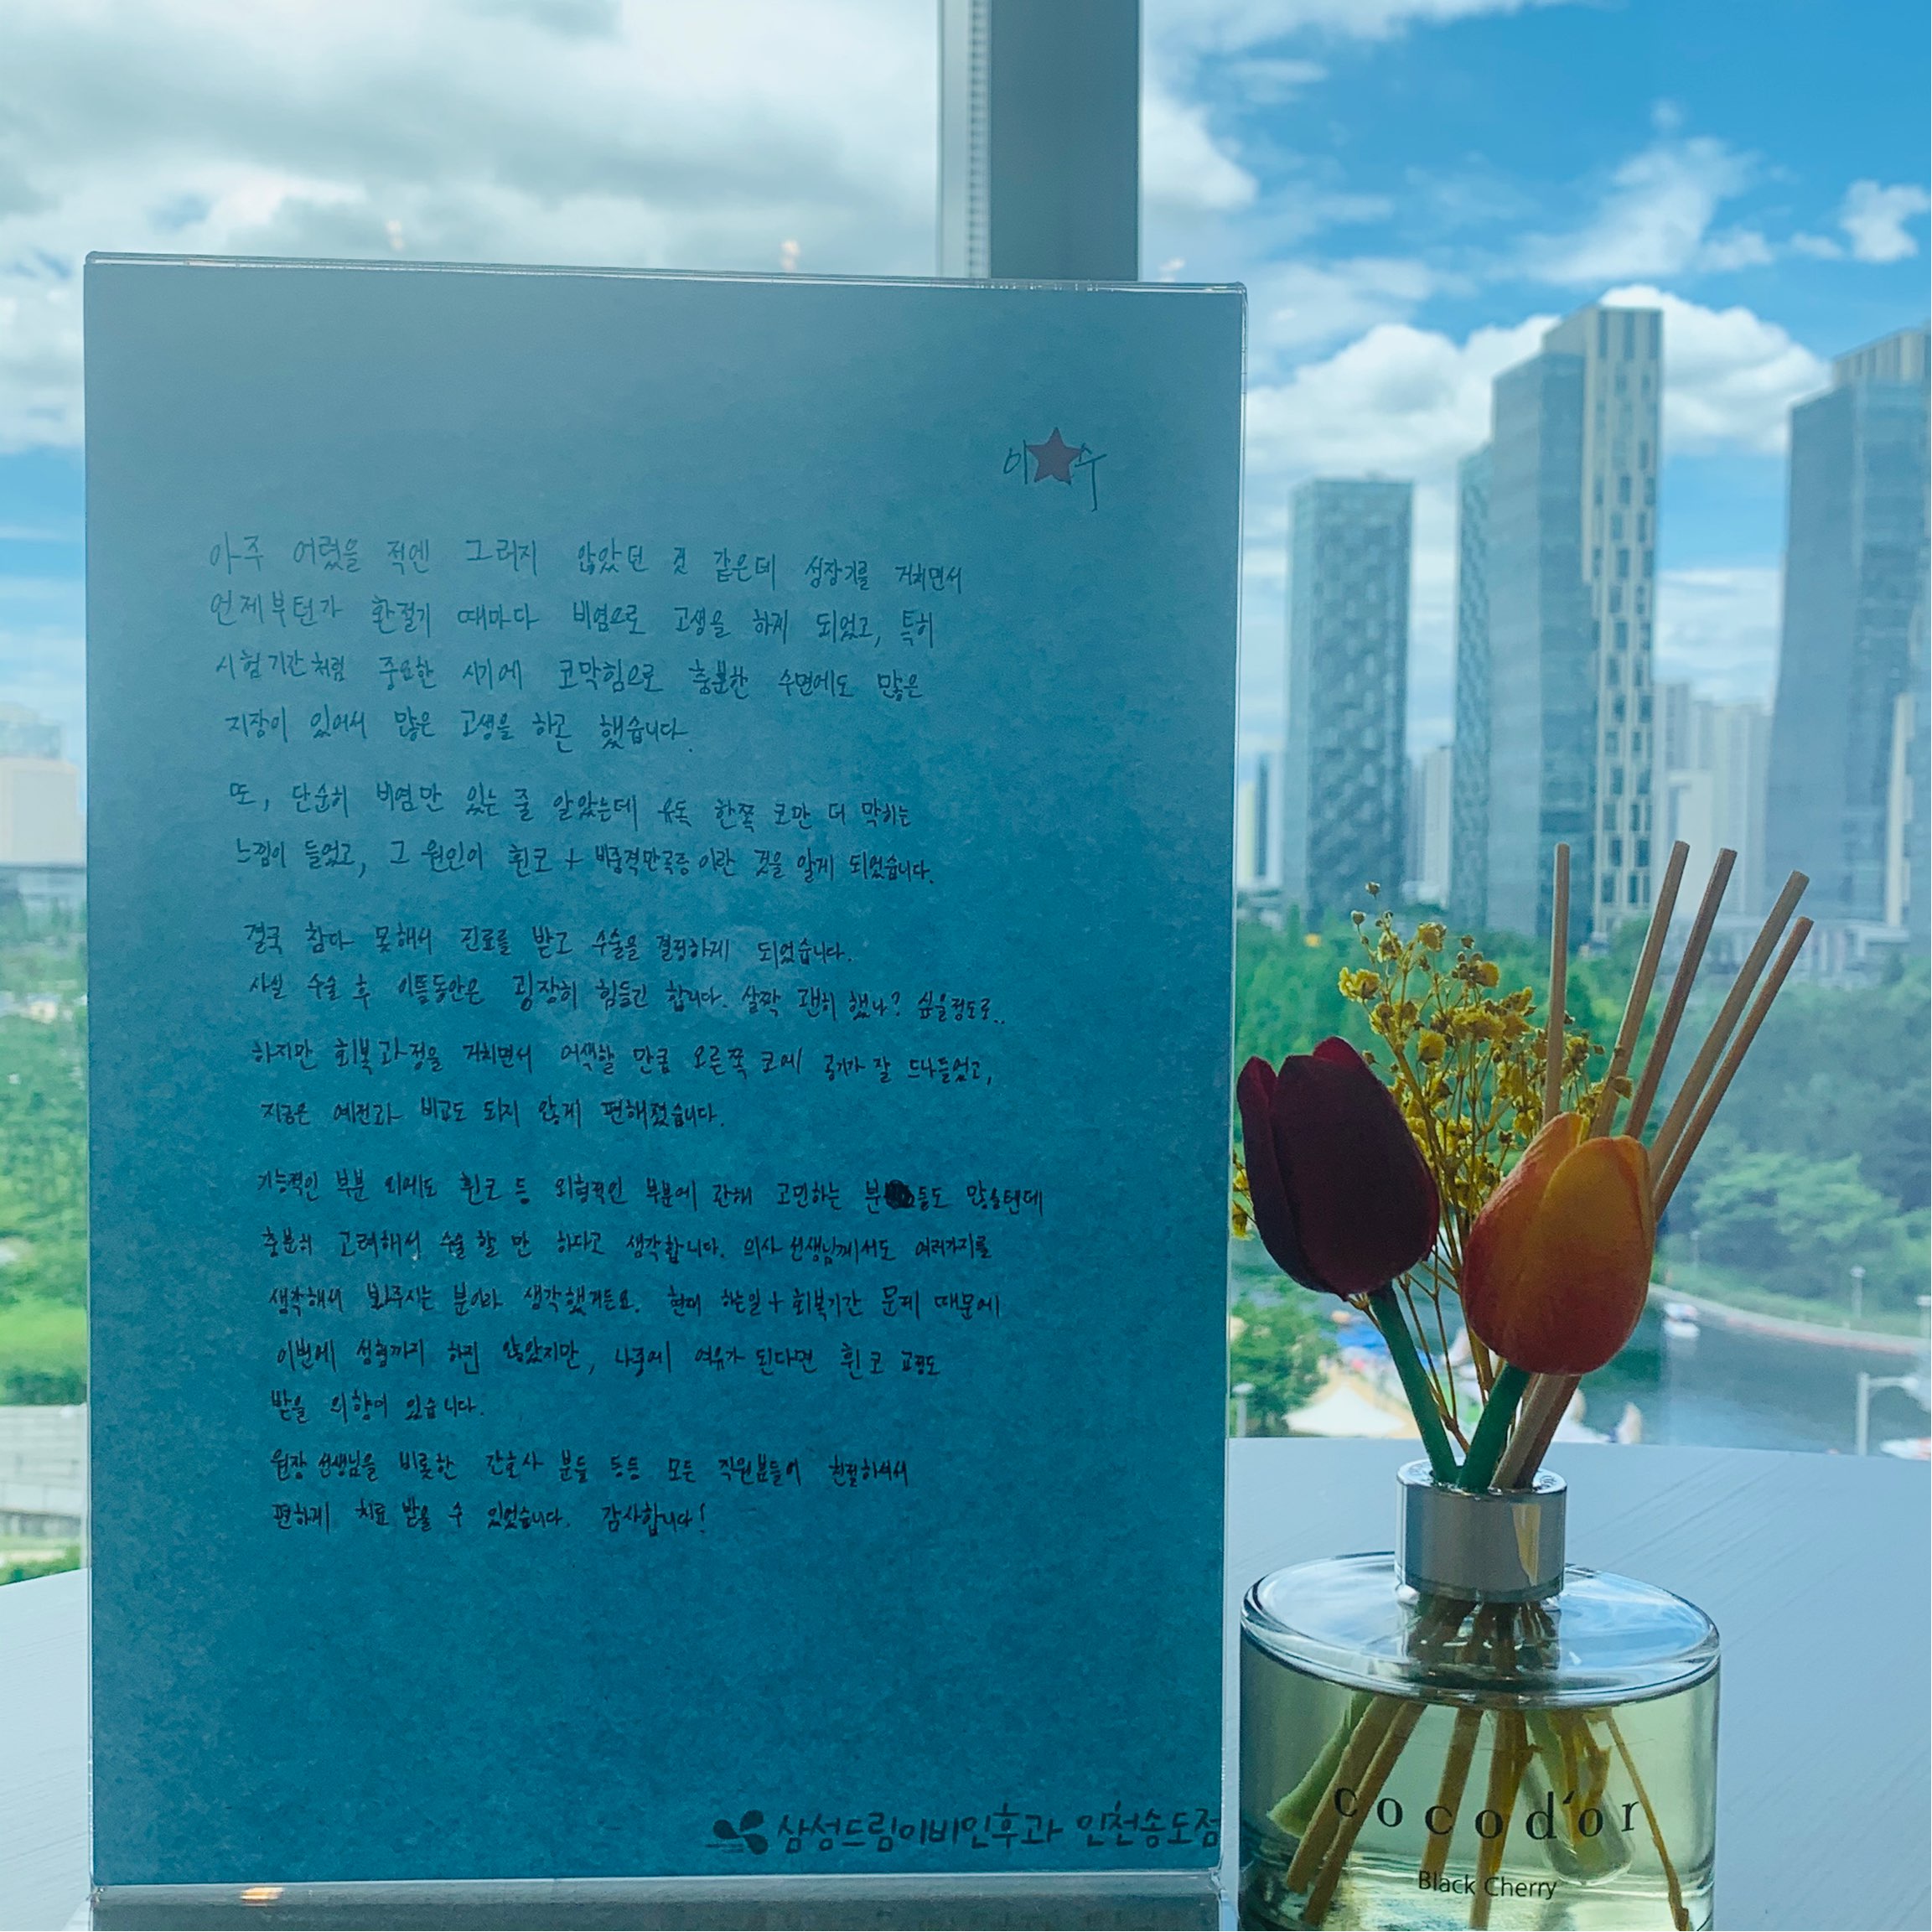 이★수
아주 어렸을 적엔 그러지 않았던 것 같은데 성장기를 거치면서
언제부턴가 환절기 때마다 비염으로 고생을 하게 되었고, 특히
시험기간처럼 중요한 시기에 코막힘으로 충분한 수면에도 많은
지장이 있어서 많은 고생을 하곤 했습니다.
또, 단순히 비염만 있는 줄 알았는데 유독 한쪽 코만 더 막히는
느낌이 들었고, 그 원인이 휜코 + 비중격만곡증 이란 것을 알게 되었습니다.
결국 참다 못해서 진료를 받고 수술을 결정하게 되었습니다.
사실 수술 후 이틀동안은 굉장히 힘들긴 합니다. 살짝 괜히 했나? 싶을정도로..
하지만 회복과정을 거치면서 어색할 만큼 오른쪽 코에 공기가 잘 드나들었고,
지금은 예전과 비교도 되지 않게 편해졌습니다.
기능적인 부분 외에도 휜코 등 외형적인 부분에 관해 고민하는 분들도 많을텐데
충분히 고려해서 수술 할 만 하다고 생각합니다. 의사 선생님께서도 여러가지를
생각해서 봐주시는 분이라 생각했거든요. 현재 하는일 + 회복기간 문제 때문에
이번에 성형까지 하진 않았지만, 나중에 여유가 된다면 휜 코 교정도
받을 의향이 있습니다.
원장 선생님을 비롯한 간호사 분들 등등 모든 직원분들이 친절하셔서
편하게 치료 받을 수 있었습니다. 감사합니다!
삼성드림이비인후과 인천송도점
cocod'or
Black Cherry